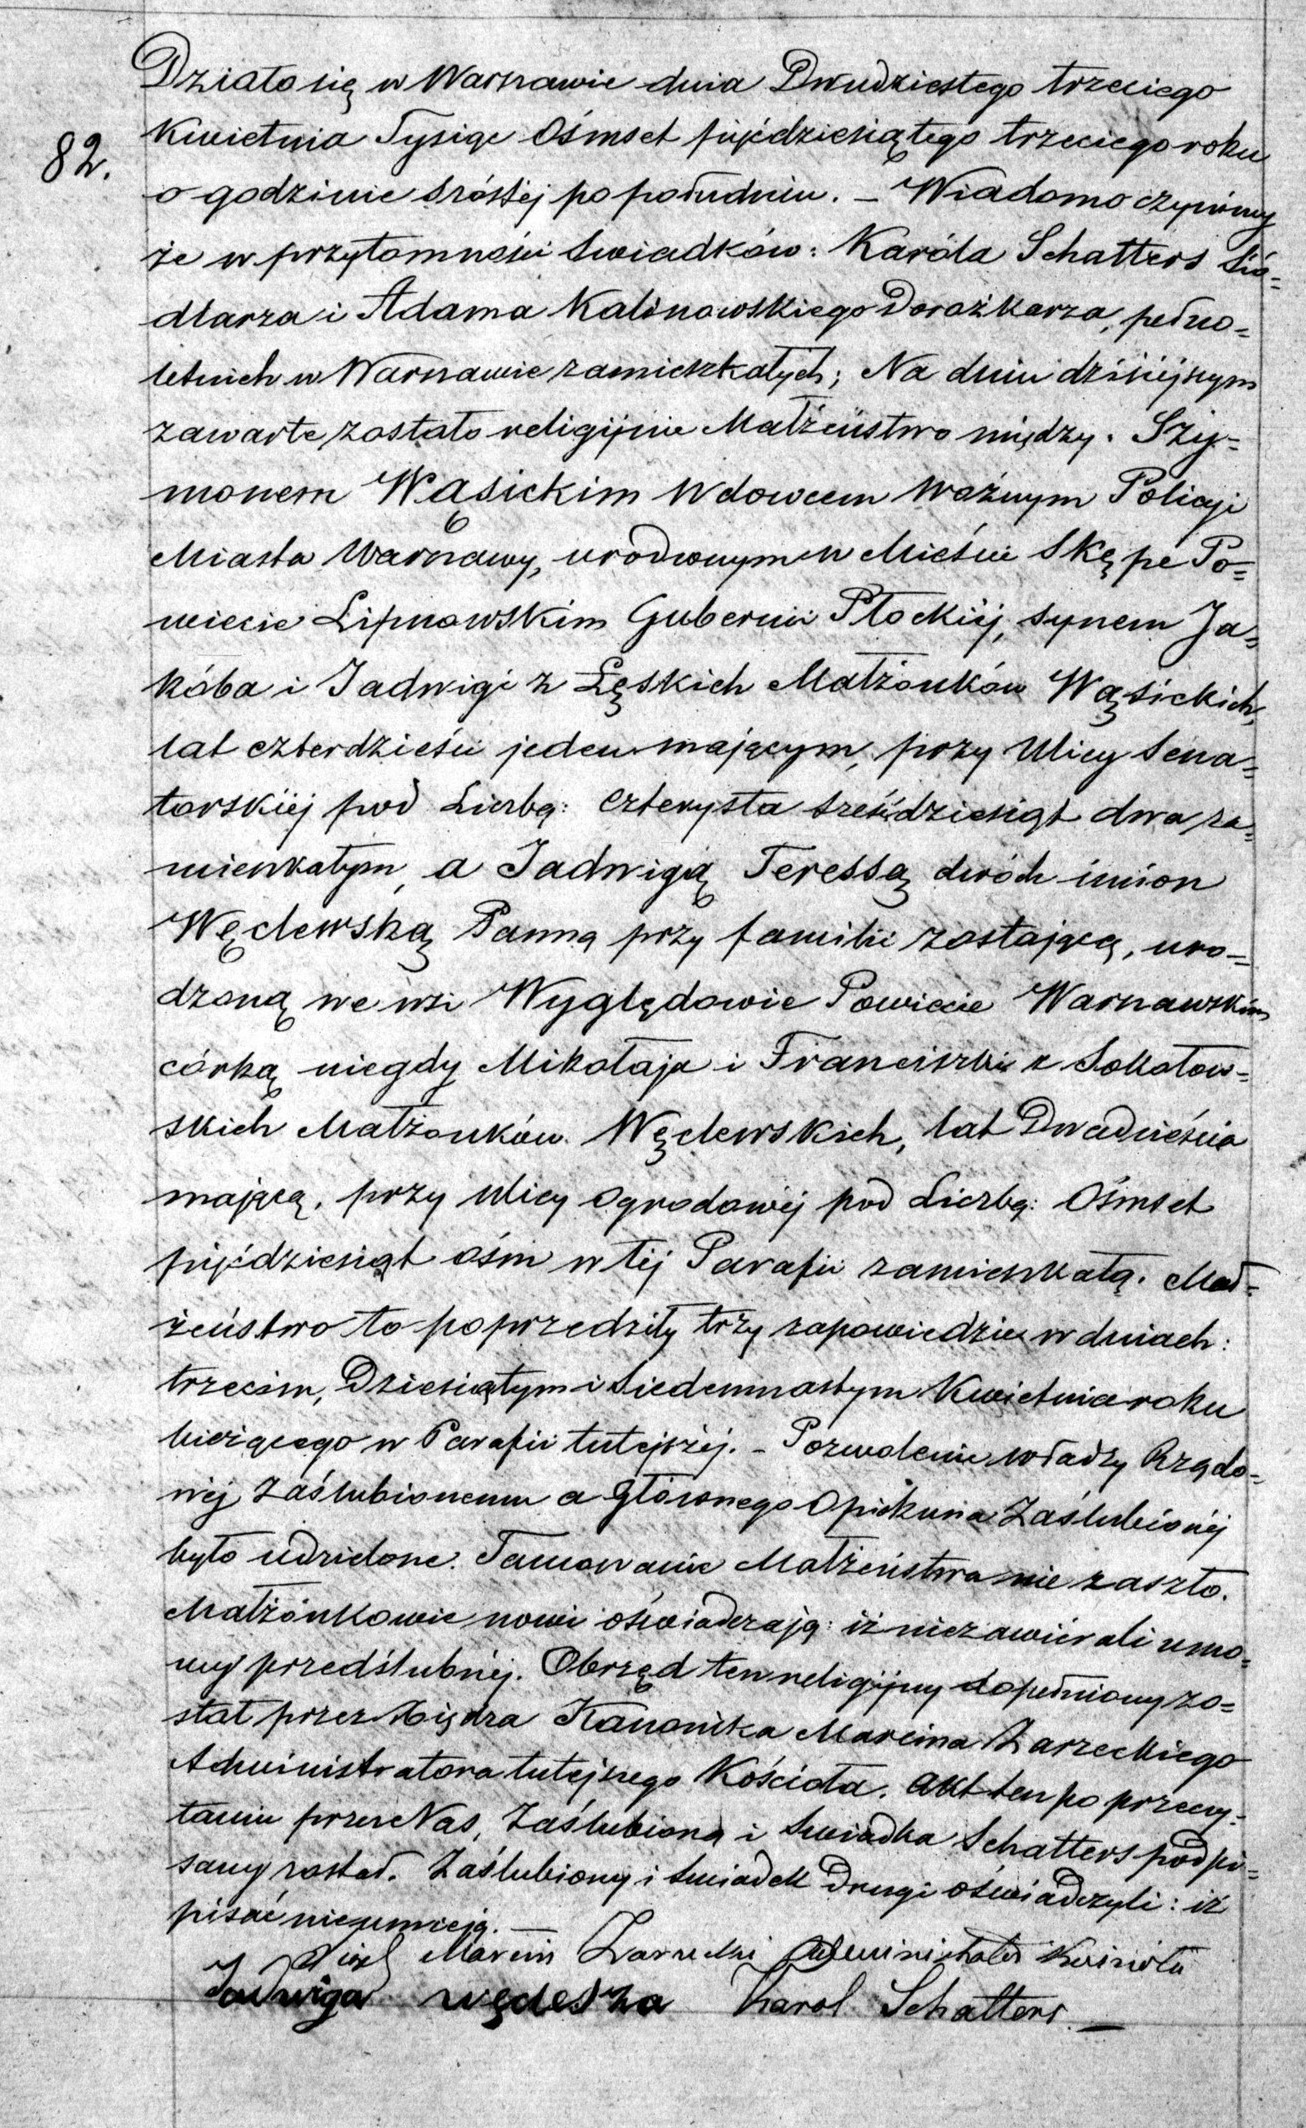 Działo się w Warszawie dnia Dwudziestego trzeciego
82.
Kwietnia Tysiąc Ośmset pięćdziesiątego trzeciego roku
o godzinie szóstéj po południu. – Wiadomo czyniemy
że w przytomności Swiadków: Karóla Schatters Sio=
dlarza i Adama Kalinowskiego Dorożkarza, pełno=
letnich w Warszawie zamieszkałych; Na dniu dzisiéjszym
zawarte zostało religijnie Małżeństwo między. Szy=
monem Wąsickim Wdowcem Woźnym Policyi
Miasta Warszawy, urodzonym w Mieście Skępe Po=
wiecie Lipnowskim Gubernii Płockiéj, synem Ja=
kóba i Jadwigi z Łęskich Małżonków Wąsickich,
lat czterdzieści jeden mającym, przy Ulicy Sena=
torskiéj pod Liczbą: czterysta sześćdziesiąt dwa za=
mieszkałym, a Jadwigą Teressą dwóch imion
Węclewską Panną przy familii zostającą, uro=
dzoną we wsi Wyględowie Powiecie Warszawskim
córką niegdy Mikołaja i Franciszki z Sokołow=
skich Małżonków Węclewskich, lat Dwadzieścia
mającą, przy Ulicy Ogrodowéj pod Liczbą: Ośmset
pięćdziesiąt ośm w téj Parafii zamieszkałą. Mał=
żeństwo to poprzedziły trzy zapowiedzie w dniach:
trzecim, Dziesiątym i Siedemnastym Kwietnia roku
bieżącego w Parafii tutejszéj. – Pozwolenie władzy Rządo=
wéj Zaślubionemu a głównego Opiekuna Zaślubionéj
było udzielone. Tamowanie Małżeństwa nie zaszło.
Małżonkowie nowi oświadczają: iż niezawierali umo=
wy przedślubnéj. Obrzęd ten religijny dopełniony zo=
stał przez Xiędza Kanonika Marcina Zarzeckiego
Administratora tutejszego Kościoła. Akt ten po przeczy=
taniu przez Nas, Zaślubioną i Swiadka Schatters podpi=
sany został. Zaślubiony i Swiadek Drugi oświadczyli: iż
pisać nieumieją. —
Marcin Zarzecki Administrator Kościoła
Jadwiga Karol Schatters. —